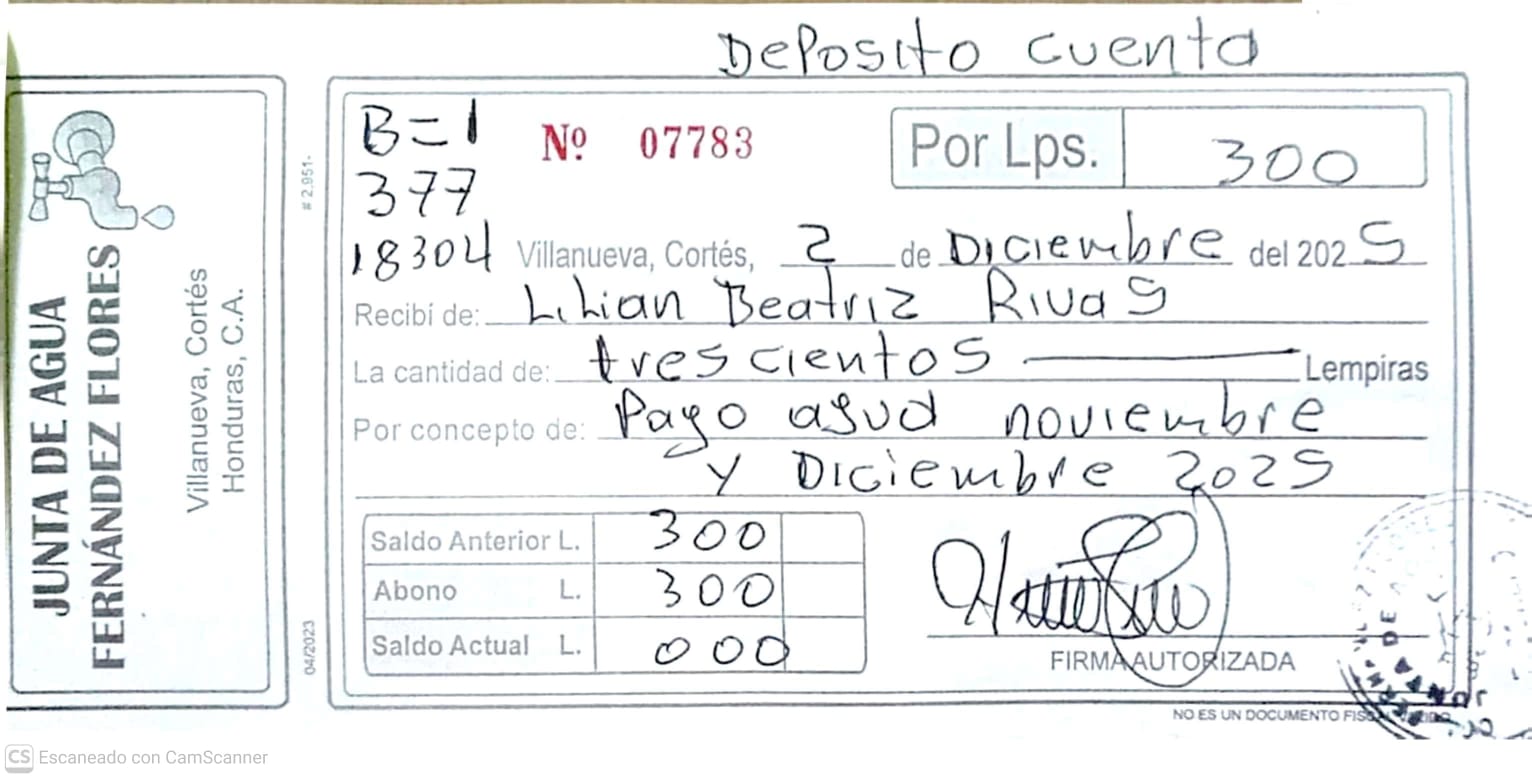 Deposito cuenta
JUNTA DE AGUA
FERNÁNDEZ FLORES
Villanueva, Cortés
Honduras, C.A.
# 2,951-
04/2023
B=1
377
18304
Nº 07783
Por Lps. 300
Villanueva, Cortés, 2 de Diciembre del 2025
Recibí de: Lilian Beatriz Rivas
La cantidad de: trescientos Lempiras
Por concepto de: Pago agua noviembre
y Diciembre 2025
Saldo Anterior L. 300
Abono L. 300
Saldo Actual L. 000
FIRMA AUTORIZADA
NO ES UN DOCUMENTO
CS Escaneado con CamScanner